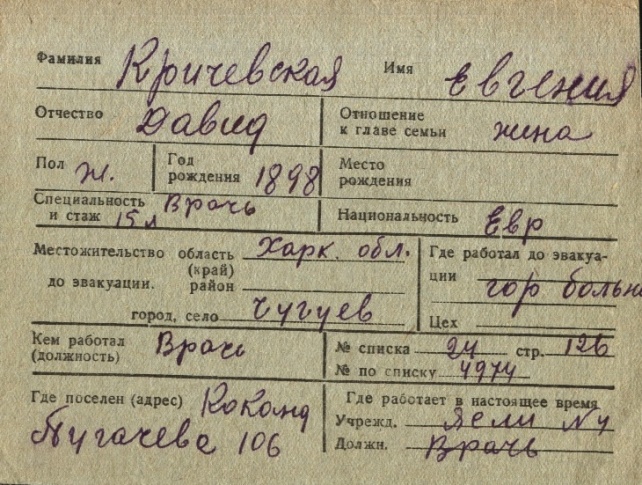 Фамилия Кричевская Имя Евгения
Отчество Давид Отношение к главе семьи жина
Пол ж. Год рождения 1898 Место рождения
Специальность и стаж Врачь 15 л Национальность Евр
Местожительство до эвакуации. область (край) Харк. обл. район
город, село Чугуев
Где работал до эвакуации гор больн
Цех
Кем работал (должность) Врачь
№ списка 24 стр. 126
№ по списку 4974
Где поселен (адрес) Коканд
Пугачева 106
Где работает в настоящее время
Учрежд. Ясли №4
Должн. Врачь